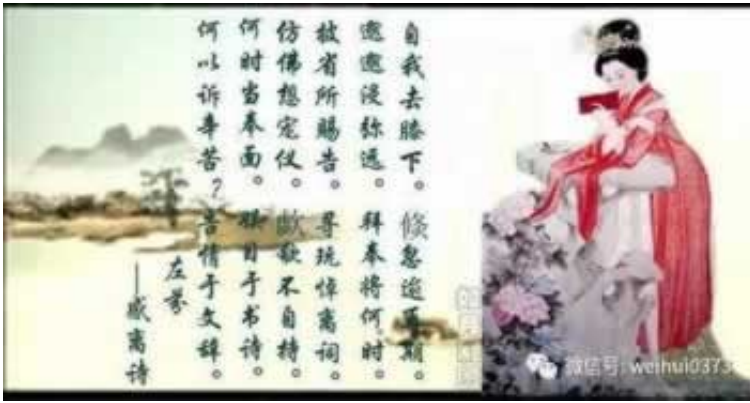 自我去膝下。倏忽逾再期。
邈邈浸弥远。拜奉将何时。
披省所赐告。寻玩悼离词。
仿佛想容仪。不自持。
何时当奉面。娱目于书诗。
何以诉辛苦？告情于文辞。
左芬
——感离诗
微信号: weihui0373